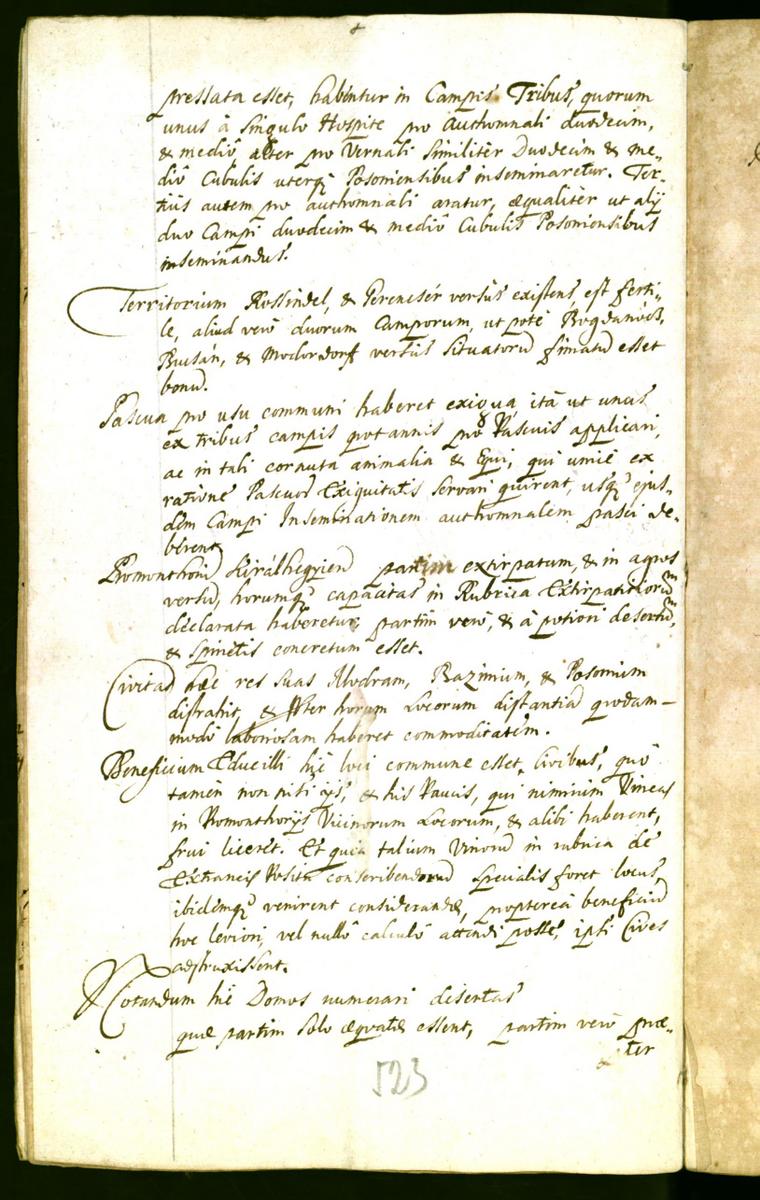 pressata esset, habentur in Campis Tribus, quorum
unus à singulo Hospite pro Authomnali duodecim,
& mediô alter pro Vernali similitèr Duodecim & me-
diô Cubulis uterq; Posoniensibus inseminaretur. Ter-
tiùs autem pro authomnali aratur, æqualitèr ut alÿ
duo Campi duodecim & mediô Cubulis Posoniensibus
inseminandus.
Territorium Rossindel, & Perencsér versùs existens, est ferti-
le, aliud verò duorum Camporum, ut potè Bogdanócz,
Bucsán, & Modordorff versùs situatorũ simatũ esset
bonũ.
Pascua pro usu communi haberet exigua, ità ut unus
ex tribus campis quotannis pro Pascuis applicari,
ac in tali cornuta animalia & Equi, qui unicè ex
ratione Pascuor Exiguitatis servari quirent, usq; ejus-
dem Campi Inseminationem authomnalem pasci de-
berent
Promonthoriũ Királhegyien partim extirpatum, & in agros
versũ, horumq; capacitas in Rubrica Extirpantiorum
declarata haberetur, partim verò, & à potiori desertũ,
& spinetis concretum esset.
Civitas hæc res suas Modram, Bazinium, & Posonium
distrahit, & pter horum Locorum distantiã quodam-
modò laboriosam haberet commoditatem.
Beneficium Educilli hîc loci commune esset Civibus, quô
tamèn non nisi ijs, & his Paucis, qui nimirùm Vineas
in Promonthorÿs Vicinorum Locorum, & alibi haberent,
frui liceret. Et quia talium Vinorũ in rubrica de
Extraneis Positis conscribendorũ specialis foret locus,
ibidèmq; venirent consideranda, proptereà beneficiũ
hoc leviori, vel nullô calculô attendi posse, ipsi Cives
adstruxissent.
Notandum hîc Domos numerari desertas
quæ partim solo æquatæ essent, partim verò præ-
ter
523